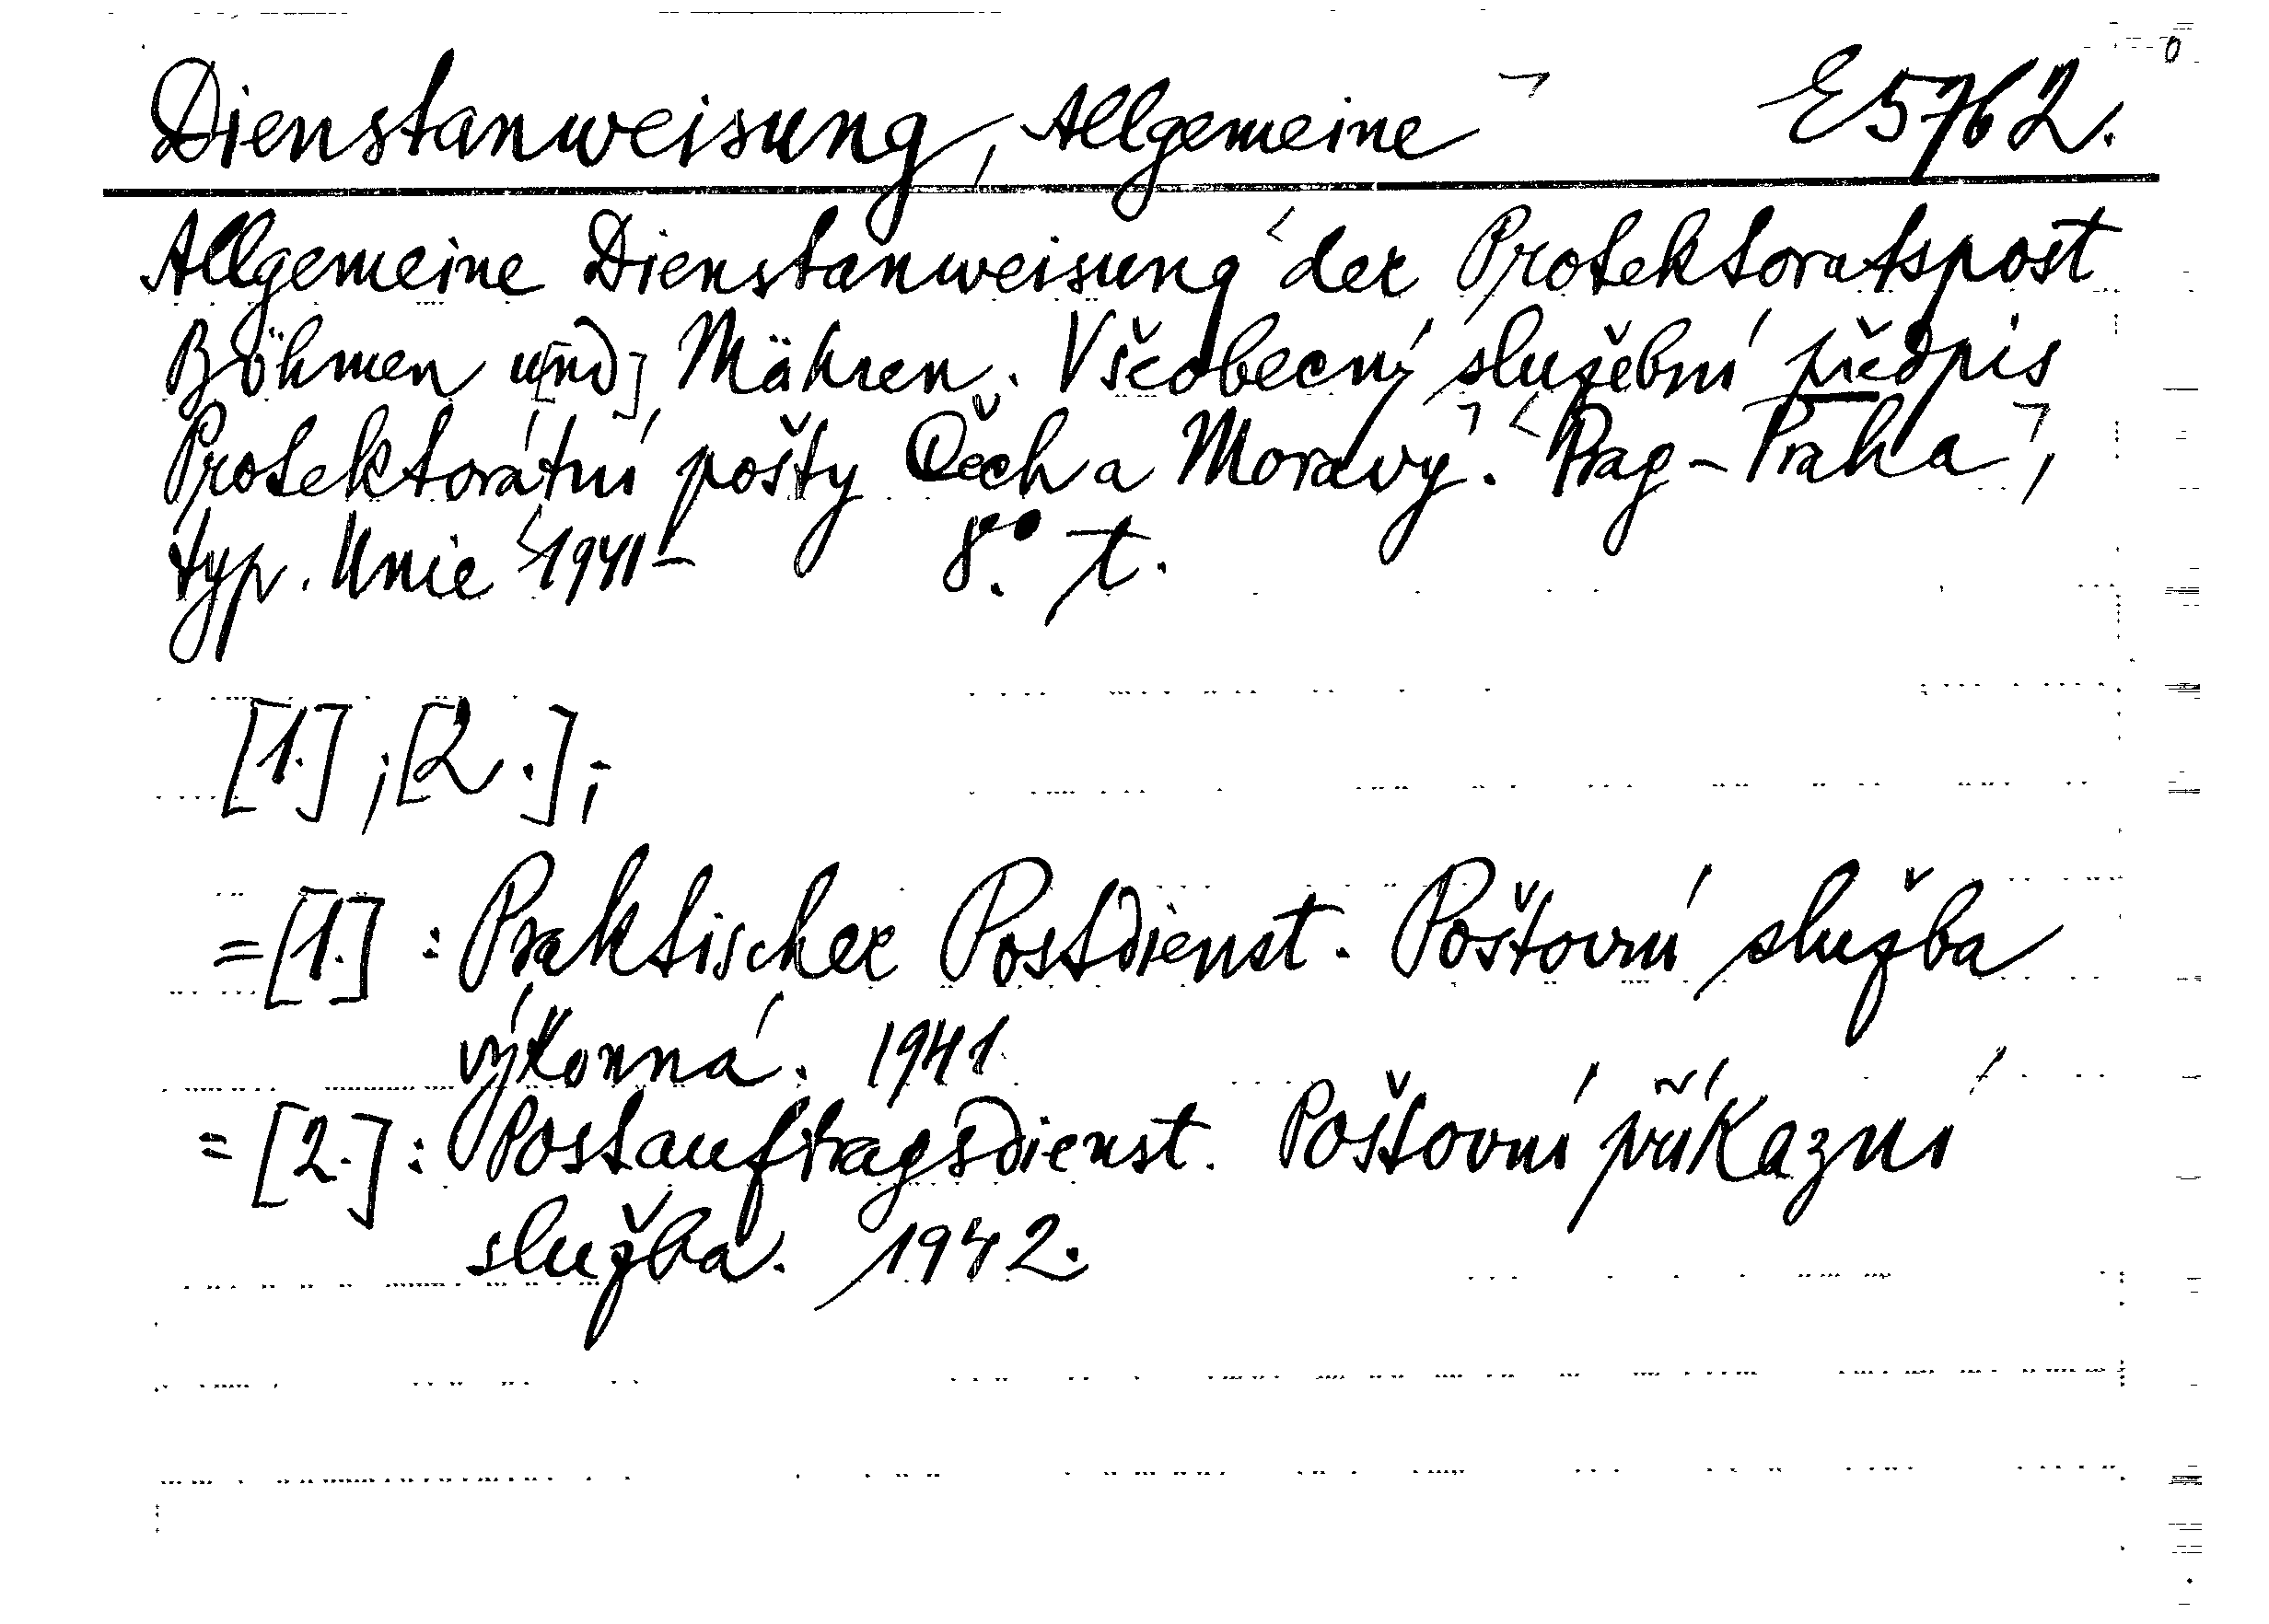 Dienstanweisung, Allgemeine E 5762.
Allgemeine Dienstanweisung der Protektoratspost
Böhmen u[nd] Mähren. Všeobecný služební předpis
Protektorátní pošty Čech a Moravy. Prag - Praha,
typ. Unie 1941- 8°. t.
[1.]; [2.];
= [1.] : Praktischer Postdienst. Poštovní služba
výkonná. 1941
= [2.] : Postauftragsdienst. Poštovní příkazní
služba. 1942.